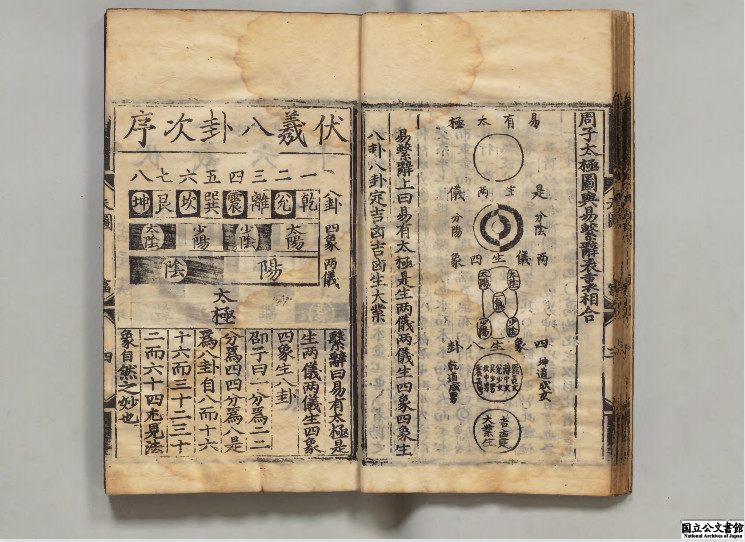 周子太極圖與易繫辭表裏相合
易有太極
是生两儀
分陰
分陽
两儀生四象
太陰
太陽
少陰
四象生八卦
坤道成女
乾道成男
吉凶定
大業生
易繫辭上曰易有太極是生两儀两儀生四象四象生
八卦八卦定吉凶吉凶生大業
伏羲八卦次序
一二三四五六七八
八卦
乾兊離震巽坎艮坤
四象
太陽
少陰
少陽
太陰
两儀
陽
陰
太極
繫辭曰易有太極是
生两儀两儀生四象
四象生八卦
邵子曰一分爲二二
分爲四四分爲八是
爲八卦自八而十六
十六而三十二三十
二而六十四尤見法
象自然之妙也
国立公文書館
National Archives of Japan